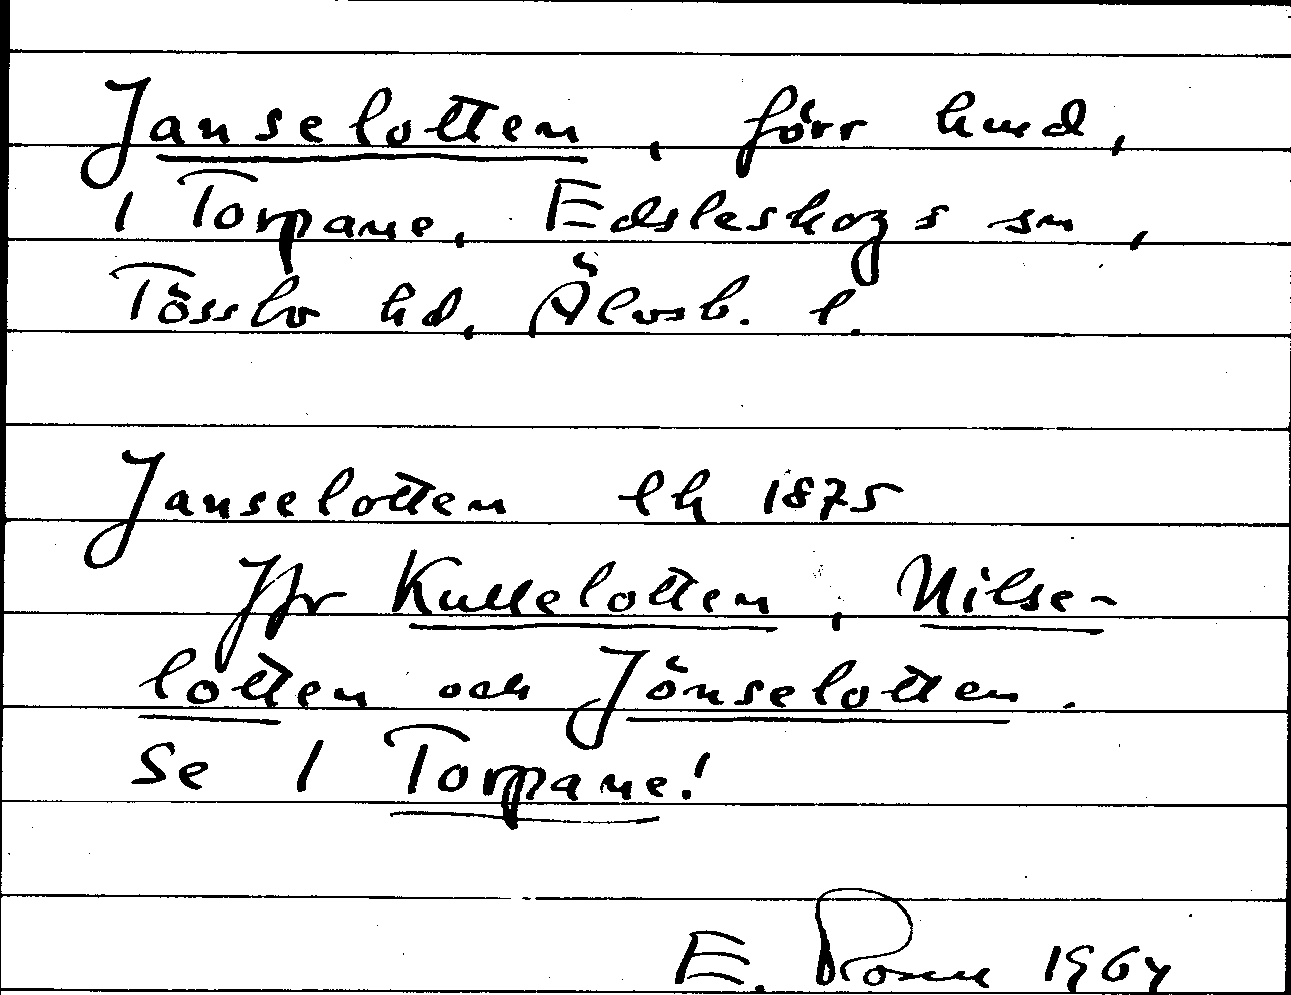 Janselotten, förr hmd,
1 Torpane, Edsleskogs sn,
Tössbo hd, Älvsb. l.
Janselotten lk 1875
Jfr Kullelotten, Nilse-
lotten och Jönselotten.
Se 1 Torpane!
E. Rosell 1964